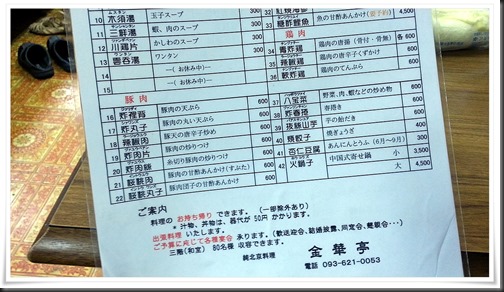 10 木須湯 玉子スープ 300
11 三鮮湯 蝦、肉のスープ
12 川鶏片 かしわのスープ
13 雲呑湯 ワンタン 300
14 —(お休み中)—
15 —(お休み中)—
16
豚肉
16 炸裡脊 豚肉の天ぷら 600
17 炸丸子 豚肉の丸い天ぷら 600
18 辣椒肉 豚天の唐辛子炒め 600
19 炸肉片 豚肉の炒りつけ 600
20 炸肉絲 糸切り豚肉の炒りつけ 600
21 豚肉の甘酢あんかけ(すぶた) 600
22 豚肉団子の甘酢あんかけ 600
33 糖酢鯉魚 魚の甘酢あんかけ(要予約) 4,500
鶏肉
34 青炸鶏 鶏肉の唐揚(骨付・骨無) 各 600
35 辣椒鶏 鶏肉の唐辛子くずかけ 600
36 軟炸鶏 鶏肉のてんぷら 600
37 八宝菜 野菜、肉、蝦などの炒め物 600
38 炸春捲 春捲き 600
39 抜絲山芋 芋の飴だき 600
40 焼餃子 焼ぎょうざ 400
41 杏仁豆腐 あんにんとうふ(6月～9月) 300
42 火鍋子 中国式寄せ鍋 小 3,500
大 4,500
ご案内
料理の お持ち帰り できます。(一部除外あり)
* 汁物、丼物は、器代が 50円 かかります。
出張料理 いたします。
ご予算に応じて各種宴会 承ります。(歓送迎会、結婚披露、同窓会、懇親会・・・)
三階(和室) 80名様 収容できます。
純北京料理 金華亭
電話 093-621-0053